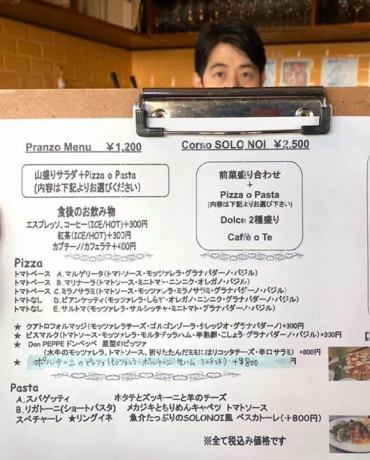 Pranzo Menu ¥1,200
Corso SOLO NOI ¥2,500
山盛りサラダ+Pizza o Pasta
(内容は下記よりお選びください)
食後のお飲み物
エスプレッソ、コーヒー(ICE/HOT)+300円
紅茶(ICE/HOT)+300円
カプチーノ/カフェラテ+400円
前菜盛り合わせ
+
Pizza o Pasta
(内容は下記よりお選びください)
Dolce 2種盛り
Caffè o Te
Pizza
トマトベース A.マルゲリータ(トマトソース・モッツァレラ・グラナパダーノ・バジル)
トマトベース B.マリナーラ(トマトソース・ミニトマト・ニンニク・オレガノ・バジル)
トマトベース C.ミラノサラミ(トマトソース・モッツァレラ・ミラノサラミ・グラナパダーノ・バジル)
トマトなし D.ビアンケッティ(モッツァレラ・しらす・オレガノ・ニンニク・グラナパダーノ・バジル)
トマトなし E.サルトマ(モッツァレラ・サルシッチャ・ミニトマト・グラナパダーノ・バジル)
★ クアトロフォルマッジ(モッツァレラチーズ・ゴルゴンゾーラ・タレッジオ・グラナパダーノ)+300円
★ ビスマルク(トマトソース・モッツァレラ・モルタデッラハム・半熟卵・こしょう・グラナパダーノ・バジル)+300円
★ Don PEPPE ドンペッペ 星型のピッツァ
(水牛のモッツァレラ、トマトソース、折りたたんだミミにはリコッタチーズ・辛口サラミ) +800円
★ +¥800
Pasta
A.スパゲッティ ホタテとズッキーニと羊のチーズ
B.リガトーニ(ショートパスタ) メカジキとちりめんキャベツ トマトソース
スペチャーレ ★リングイネ 魚介たっぷりのSOLONOI風 ペスカトーレ(+800円)
※全て税込み価格です